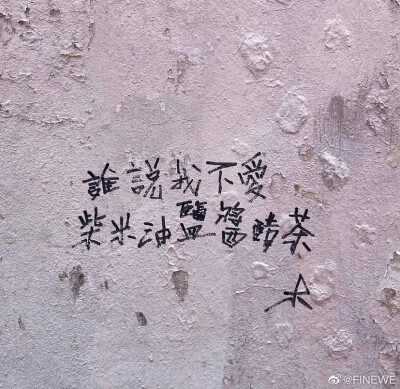 誰說我不愛
柴米油鹽醬醋茶
@FINEWE